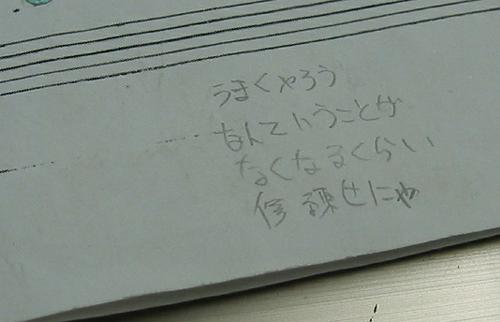 うまくやろう
なんていうことが
なくなるくらい
修練せにゃ